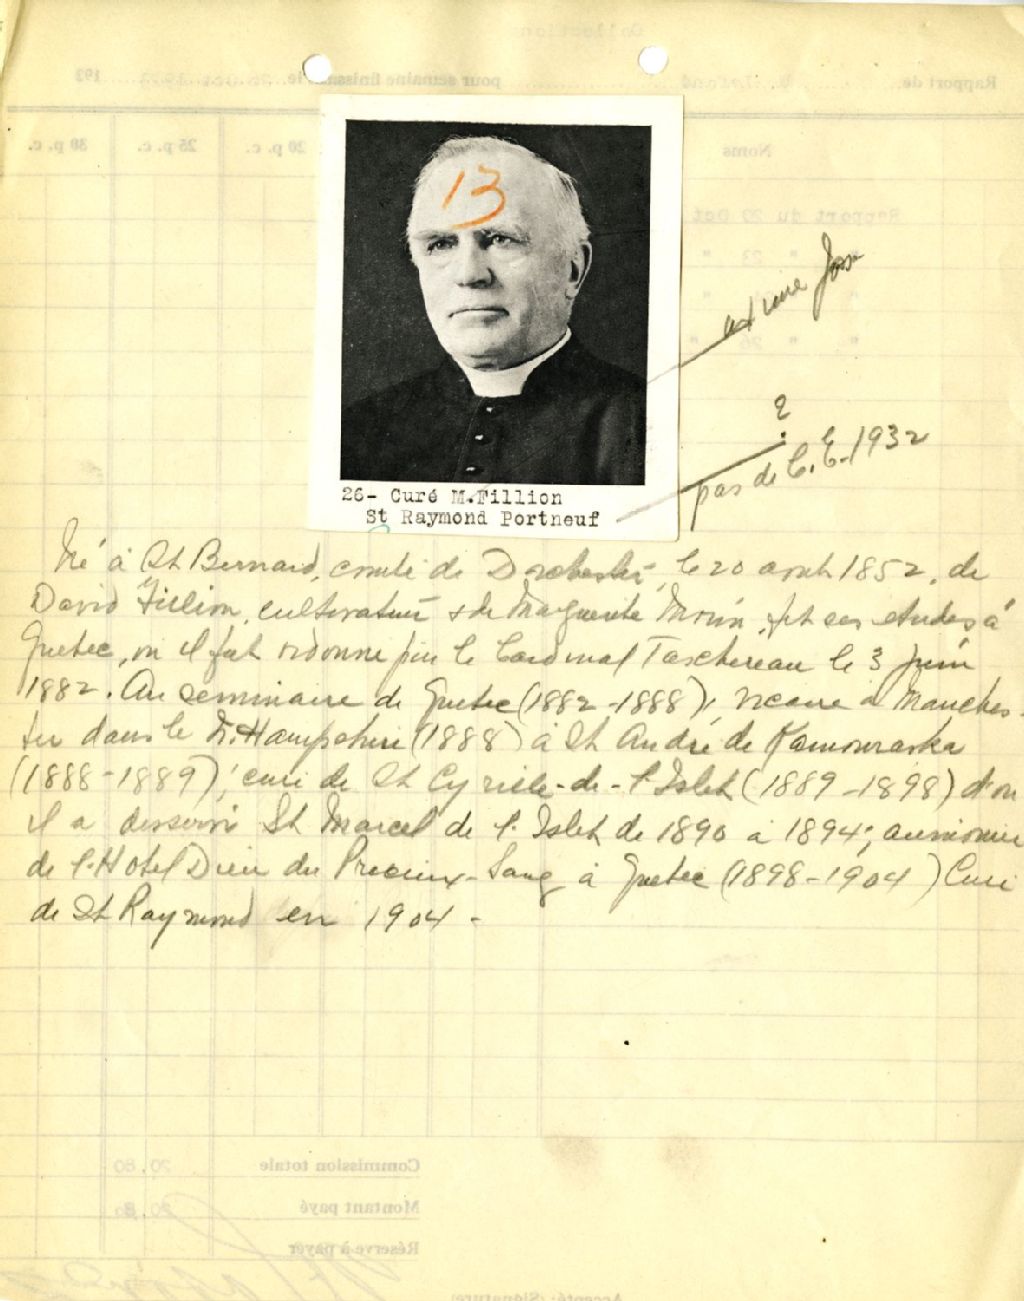 13
26- Curé M.Fillion
St Raymond Portneuf
?
pas de C.E. 1932
Né à St Bernard, comté de Dorchester, le 20 aout 1852, de
David Fillion, cultivateur & de Marguerite Morin, fit ses etudes à
Quebec, ou il fut ordonné par le Cardinal Taschereau le 3 juin
1882. Au seminaire de Quebec (1882-1888), vicaire à Manches-
ter dans le N. Hampshire (1888) à St André de Kamouraska
(1888-1889); curé de St Cyrille-de-l'Islet (1889-1898) d'ou
il a desservi St Marcel de l'Islet de 1890 à 1894; aumonier
de l'Hotel Dieu du Precieux-Sang à Quebec (1898-1904) Curé
de St Raymond en 1904 -